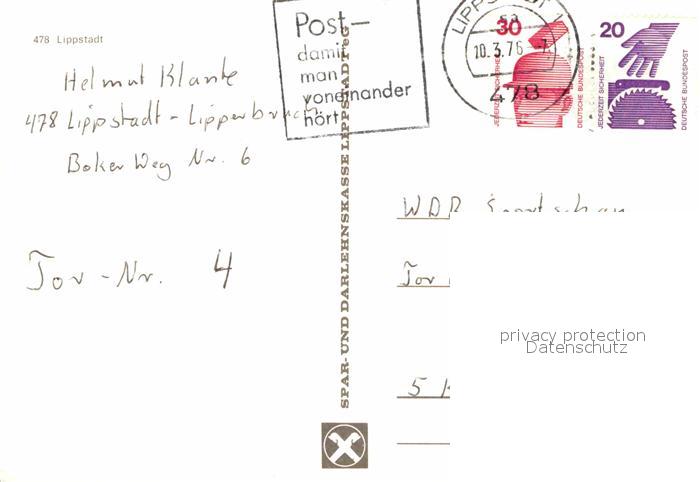 478 Lippstadt
Helmut Klante
478 Lippstadt - Lipperbruch
Boker Weg Nr. 6
Tor - Nr. 4
Post-
damit
man
voneinander
hört
LIPPSTADT 1
sa
10.3.76 - 7
478
30
JEDERZEIT SICHERHEIT
DEUTSCHE BUNDESPOST
20
JEDERZEIT SICHERHEIT
DEUTSCHE BUNDESPOST
SPAR- UND DARLEHNSKASSE LIPPSTADT eG
WDR Sportschau
Tor
5
privacy protection
Datenschutz